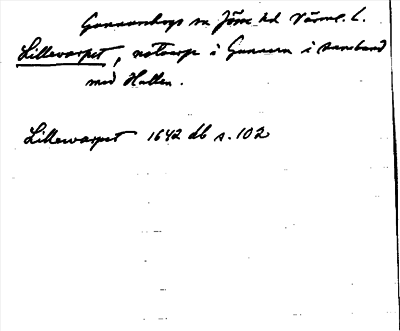 Gunnarskogs sn Jösse hd Värml. l.
Lillevarpet, notvarp i Gunnern i samband
med Hallen.
Lillewarpet 1642 db s. 102